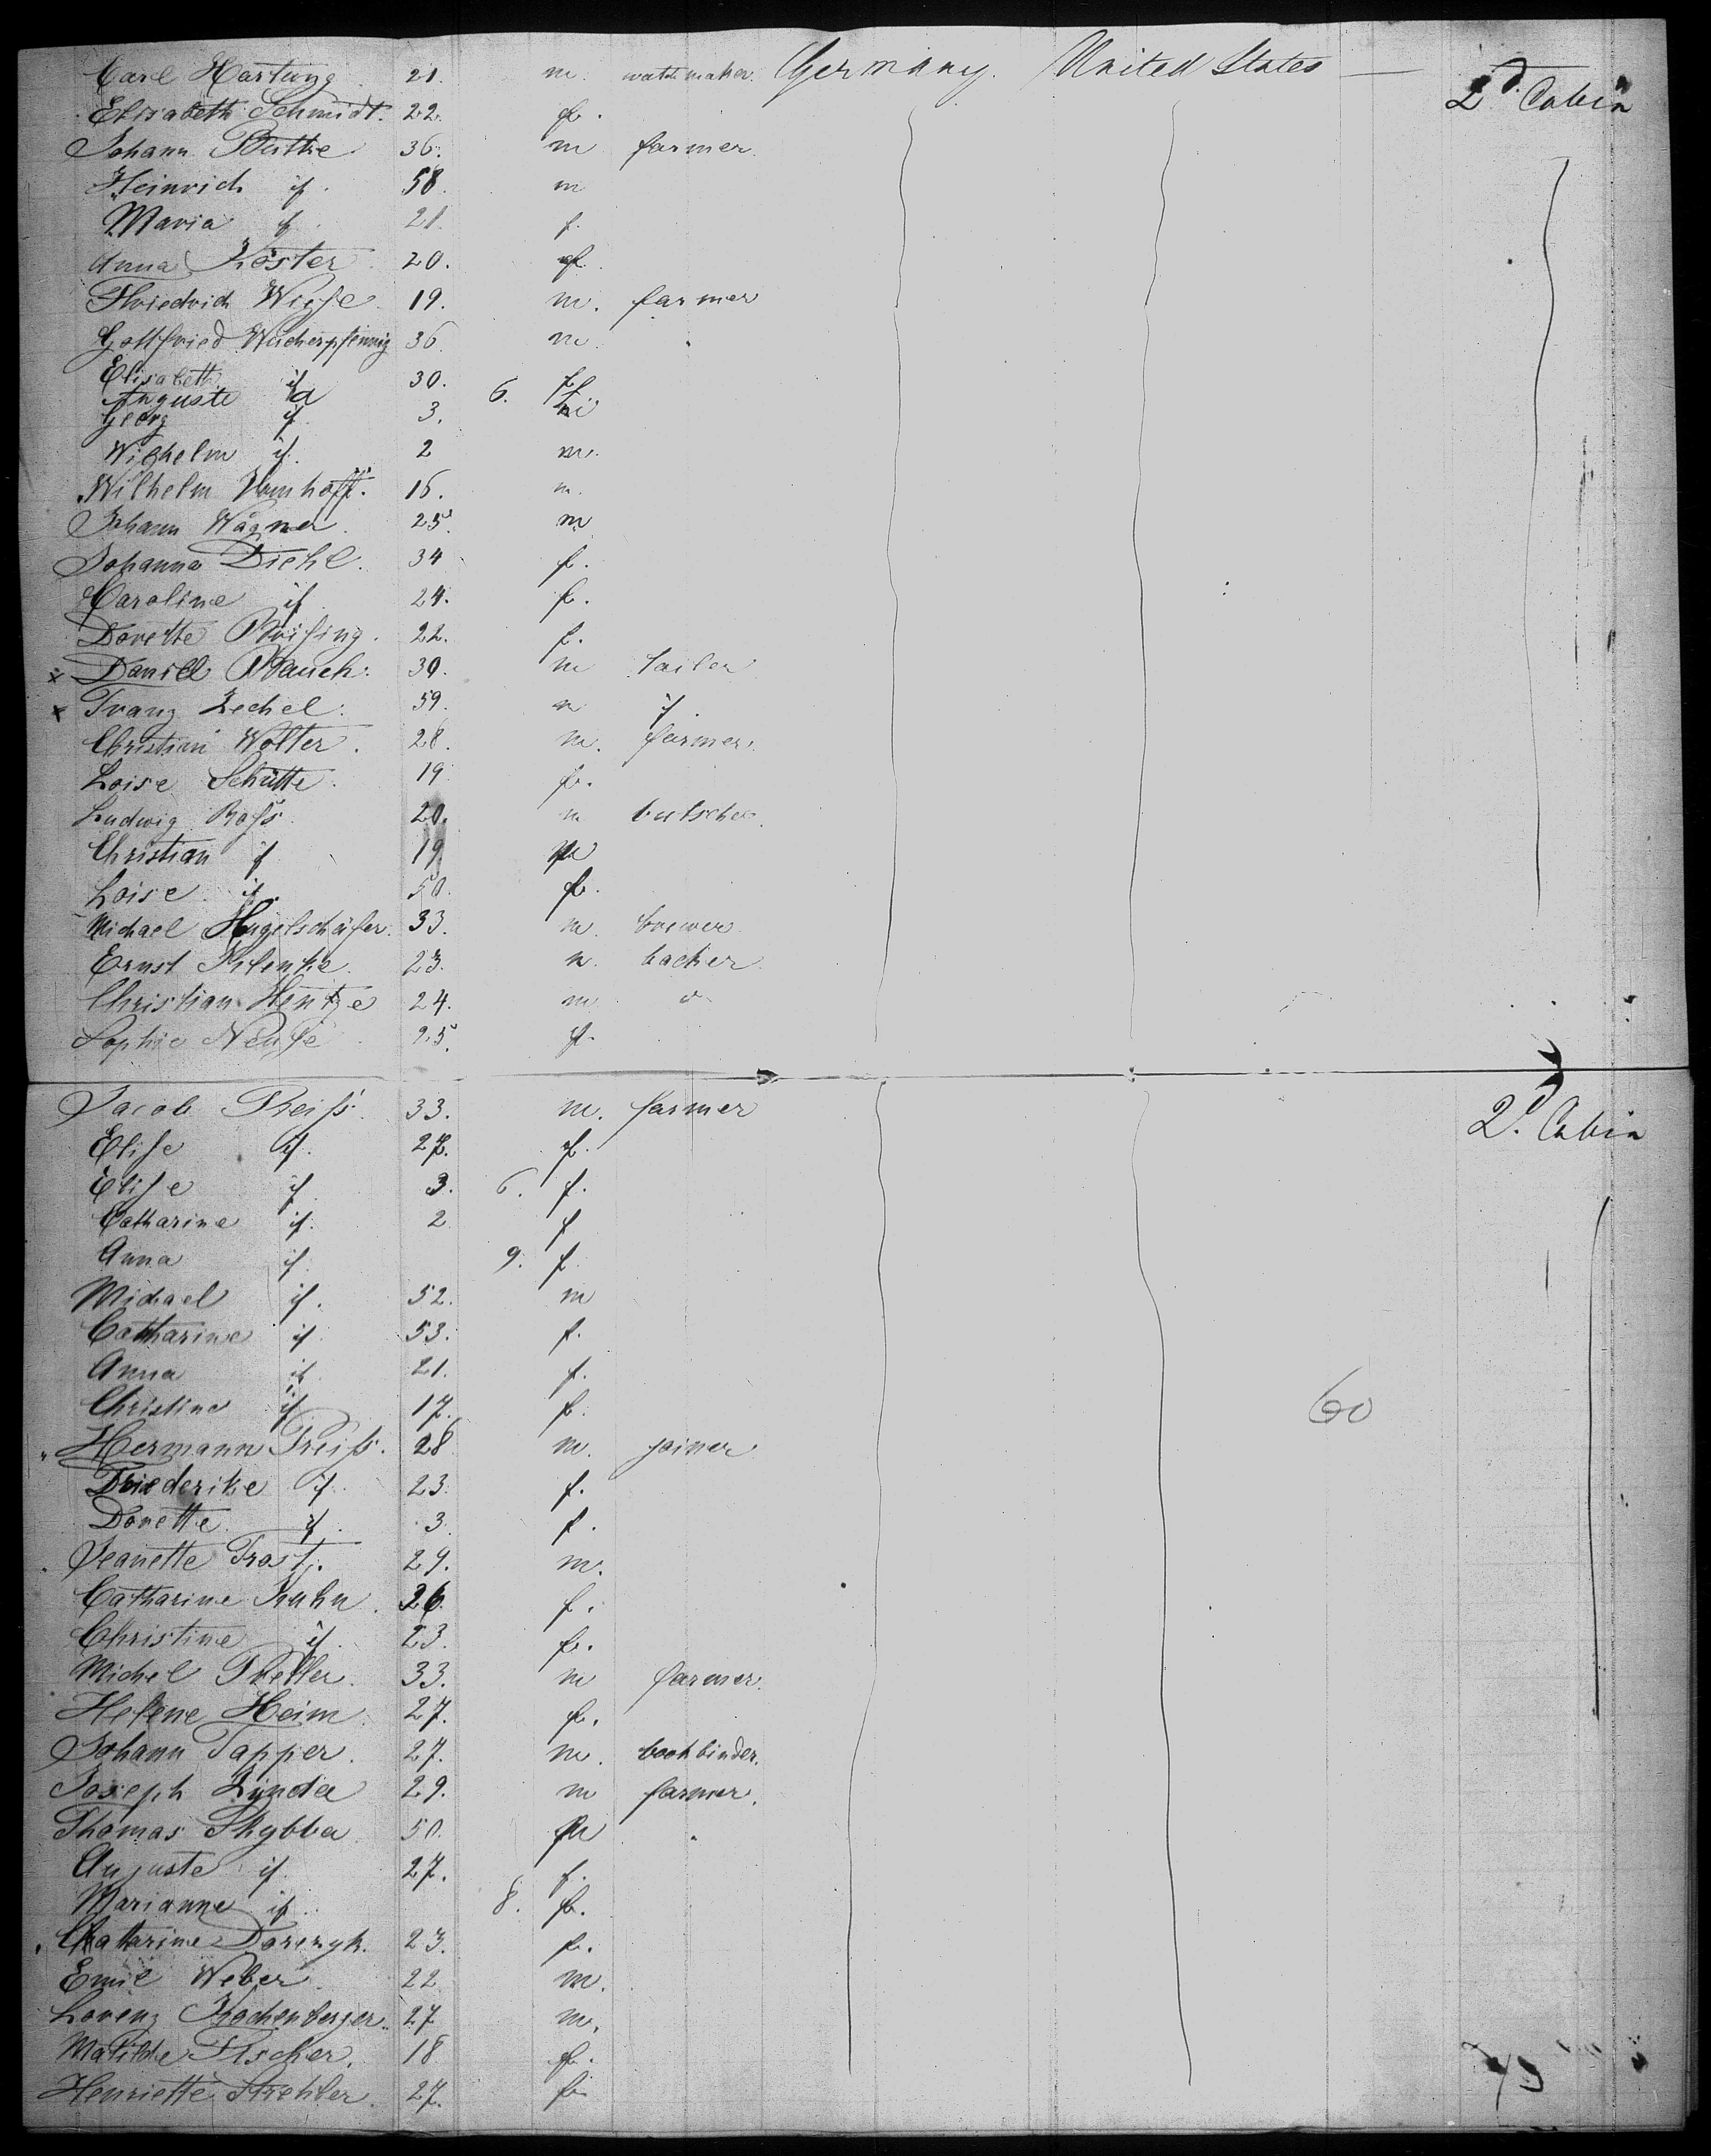 Carl Hartung 21. m. watchmaker. Germany. United States — 2d Cabin
Elisabeth Schmidt. 22. f.
Johann Buthe 36. m farmer.
Heinrich if. 58. m
Maria if 21. f.
Anna Köster 20. f.
Friedrich Wiese 19. m. farmer
Gottfried Wucherpfennig 36. m. "
Elisabeth if 30. f.
Auguste id 6. f
Georg if 3. m
Wilhelm if. 2 m.
Wilhelm 16. m.
Johann Wagner. 25. m
Johanna Diehl. 34 f.
Caroline if 24. f.
Dorette 22. f.
x Daniel Rauch. 30. m tailer
x Franz Zechel. 59. m if
Christian Wolter. 28. m. farmer.
Loise Schütte. 19 f.
Ludwig Roß 20. m butscher.
Christian if 19 m
Loise if. 50. f.
Michael Hügelschäfer. 33. m. brewer
Ernst Klenke. 23. m. backer
Christian Hentze 24. m d
Sophie Neuse 25. f.
Jacob Preiß. 33. m. farmer 2d. Cabin
Elise if. 27. f.
Elise if 3. 6. f.
Catharine if. 2 f
Anna if. 9. f.
Michael if. 52. m
Catharine if 53. f.
Anna if 21. f.
Christine if 17. f. 60
Hermann Preiß. 28 m. joiner
Friederike if. 23. f.
Dorette if. 3. f.
Jeanette Trost. 29. m.
Catharine Kuhn. 26. f.
Christine if. 23. f.
Michel 33. m farmer.
Helene Heim 27. f.
Johann Tapper. 27. m. bookbinder.
Joseph Lynda 29. m farmer.
Thomas Skybba 50. m "
Auguste if. 27. f.
Marianne if. 8. f.
Chatarine 23. f.
Emil Weber. 22 m.
Lorenz Kochenberger. 27 m.
Matilde Fischer. 18 f.
Henriette Strehler. 27. f.